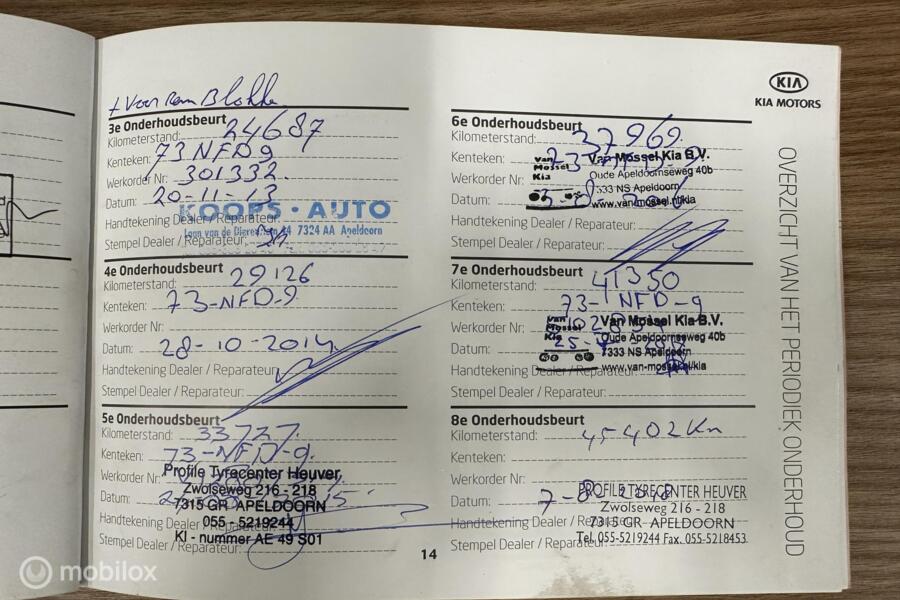 + Voor rem Blokke
3e Onderhoudsbeurt
Kilometerstand: 24687
Kenteken: 73 NFD 9
Werkorder Nr: 301332.
Datum: 20-11-13
Handtekening Dealer / Reparateur:
KOOPS · AUTO
7324 AA Apeldoorn
Stempel Dealer / Reparateur:
4e Onderhoudsbeurt
Kilometerstand: 29126
Kenteken: 73-NFD-9
Werkorder Nr:
Datum: 28-10-2014
Handtekening Dealer / Reparateur:
Stempel Dealer / Reparateur:
5e Onderhoudsbeurt
Kilometerstand: 33727.
Kenteken: 73-NFD-9
Werkorder Nr:
Profile Tyrecenter Heuver
Zwolseweg 216 - 218
Datum:
7315 GR APELDOORN
Handtekening Dealer / Reparateur:
055 - 5219244
KI - nummer AE 49 S01
Stempel Dealer / Reparateur:
14
6e Onderhoudsbeurt
Kilometerstand: 37969
Kenteken:
Van Mossel Kia
Van Mossel Kia B.V.
Werkorder Nr:
Oude Apeldoornseweg 40b
7333 NS Apeldoorn
Datum:
www.van-mossel.nl/kia
Handtekening Dealer / Reparateur:
Stempel Dealer / Reparateur:
7e Onderhoudsbeurt
Kilometerstand: 41350
Kenteken: 73-NFD-9
Werkorder Nr:
Van Mossel Kia
Van Mossel Kia B.V.
Oude Apeldoornseweg 40b
Datum:
7333 NS Apeldoorn
Handtekening Dealer / Reparateur:
www.van-mossel.nl/kia
Stempel Dealer / Reparateur:
8e Onderhoudsbeurt
Kilometerstand: 45402 Km
Kenteken:
Werkorder Nr:
PROFILE TYRECENTER HEUVER
Datum: 7-8-2018
Zwolseweg 216 - 218
Handtekening Dealer / Reparateur:
7315 GR APELDOORN
Stempel Dealer / Reparateur:
Tel. 055-5219244 Fax. 055-5218453
KIA
KIA MOTORS
OVERZICHT VAN HET PERIODIEK ONDERHOUD
mobilox